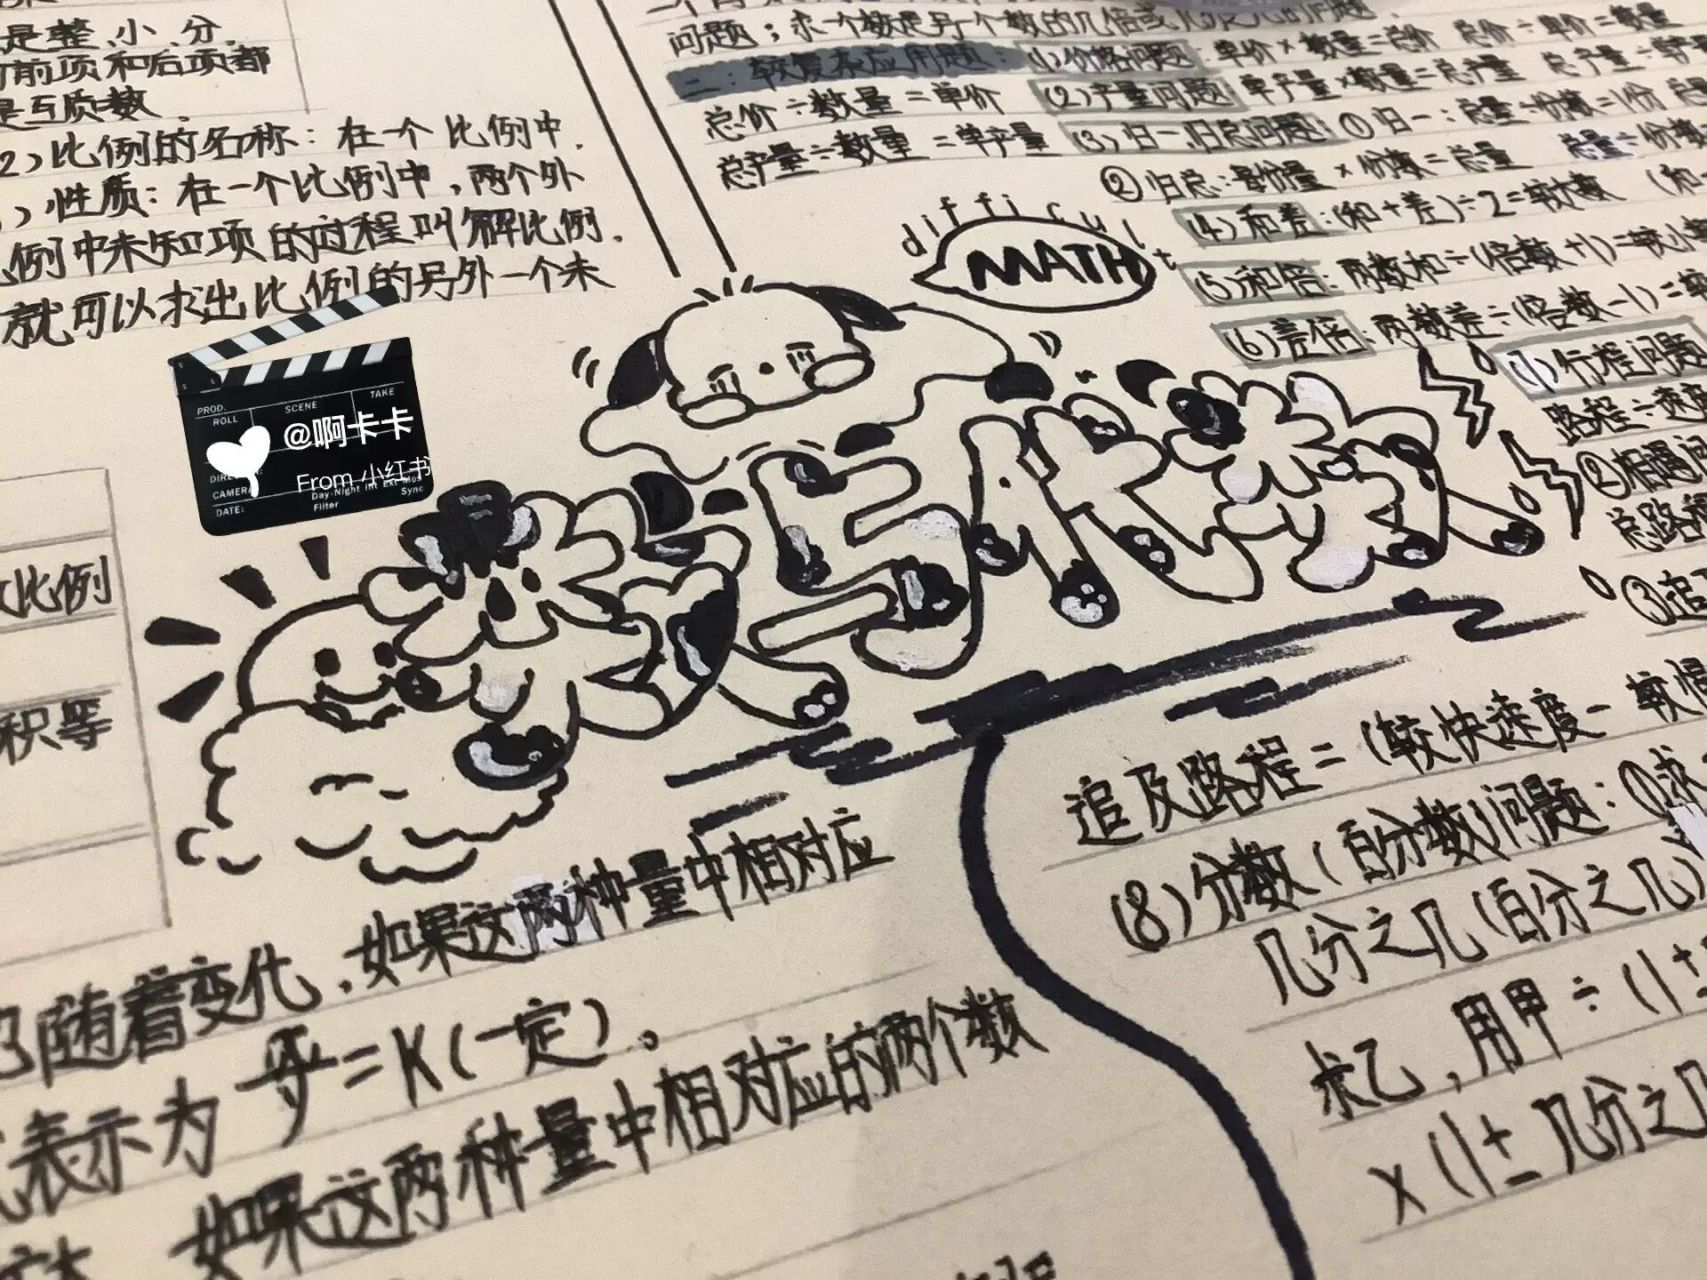 是整、小、分.
前项和后项都
是互质数.
2)比例的名称：在一个比例中.
)性质：在一个比例中，两个外
例中未知项的过程叫解比例.
就可以求出比例的另外一个未
问题；求一个数是另一个数的几倍或
二：较复杂应用题：(1)价格问题：单价×数量=总价 总价÷单价=数量
总价÷数量=单价 (2)产量问题：单产量×数量=总产量 总产量÷
总产量÷数量=单产量 (3)归一、归总问题：①归一：总量÷份数=1份
②归总：每份量×份数=总量 总量÷份数
(4)和差：(和+差)÷2=较大数
(5)和倍：两数和÷(倍数+1)=较小
(6)差倍：两数差÷(倍数-1)=
行程问题
路程÷速
②相遇问
总路程
③追
difficult
MATH
PROD.
ROLL
SCENE
TAKE
@啊卡卡
From 小红书
CAMERA
Day·Night Int Ext Mos
Filter
Sync
DATE:
数与代数
比例
积等
追及路程=(较快速度-较慢
(8)分数(百分数)问题：①求
几分之几(百分之几)
求乙，用甲÷(1±
×(1±几分之几
随着变化，如果这两种量中相对应
表示为
=K(一定)。
如果这两种量中相对应的两个数